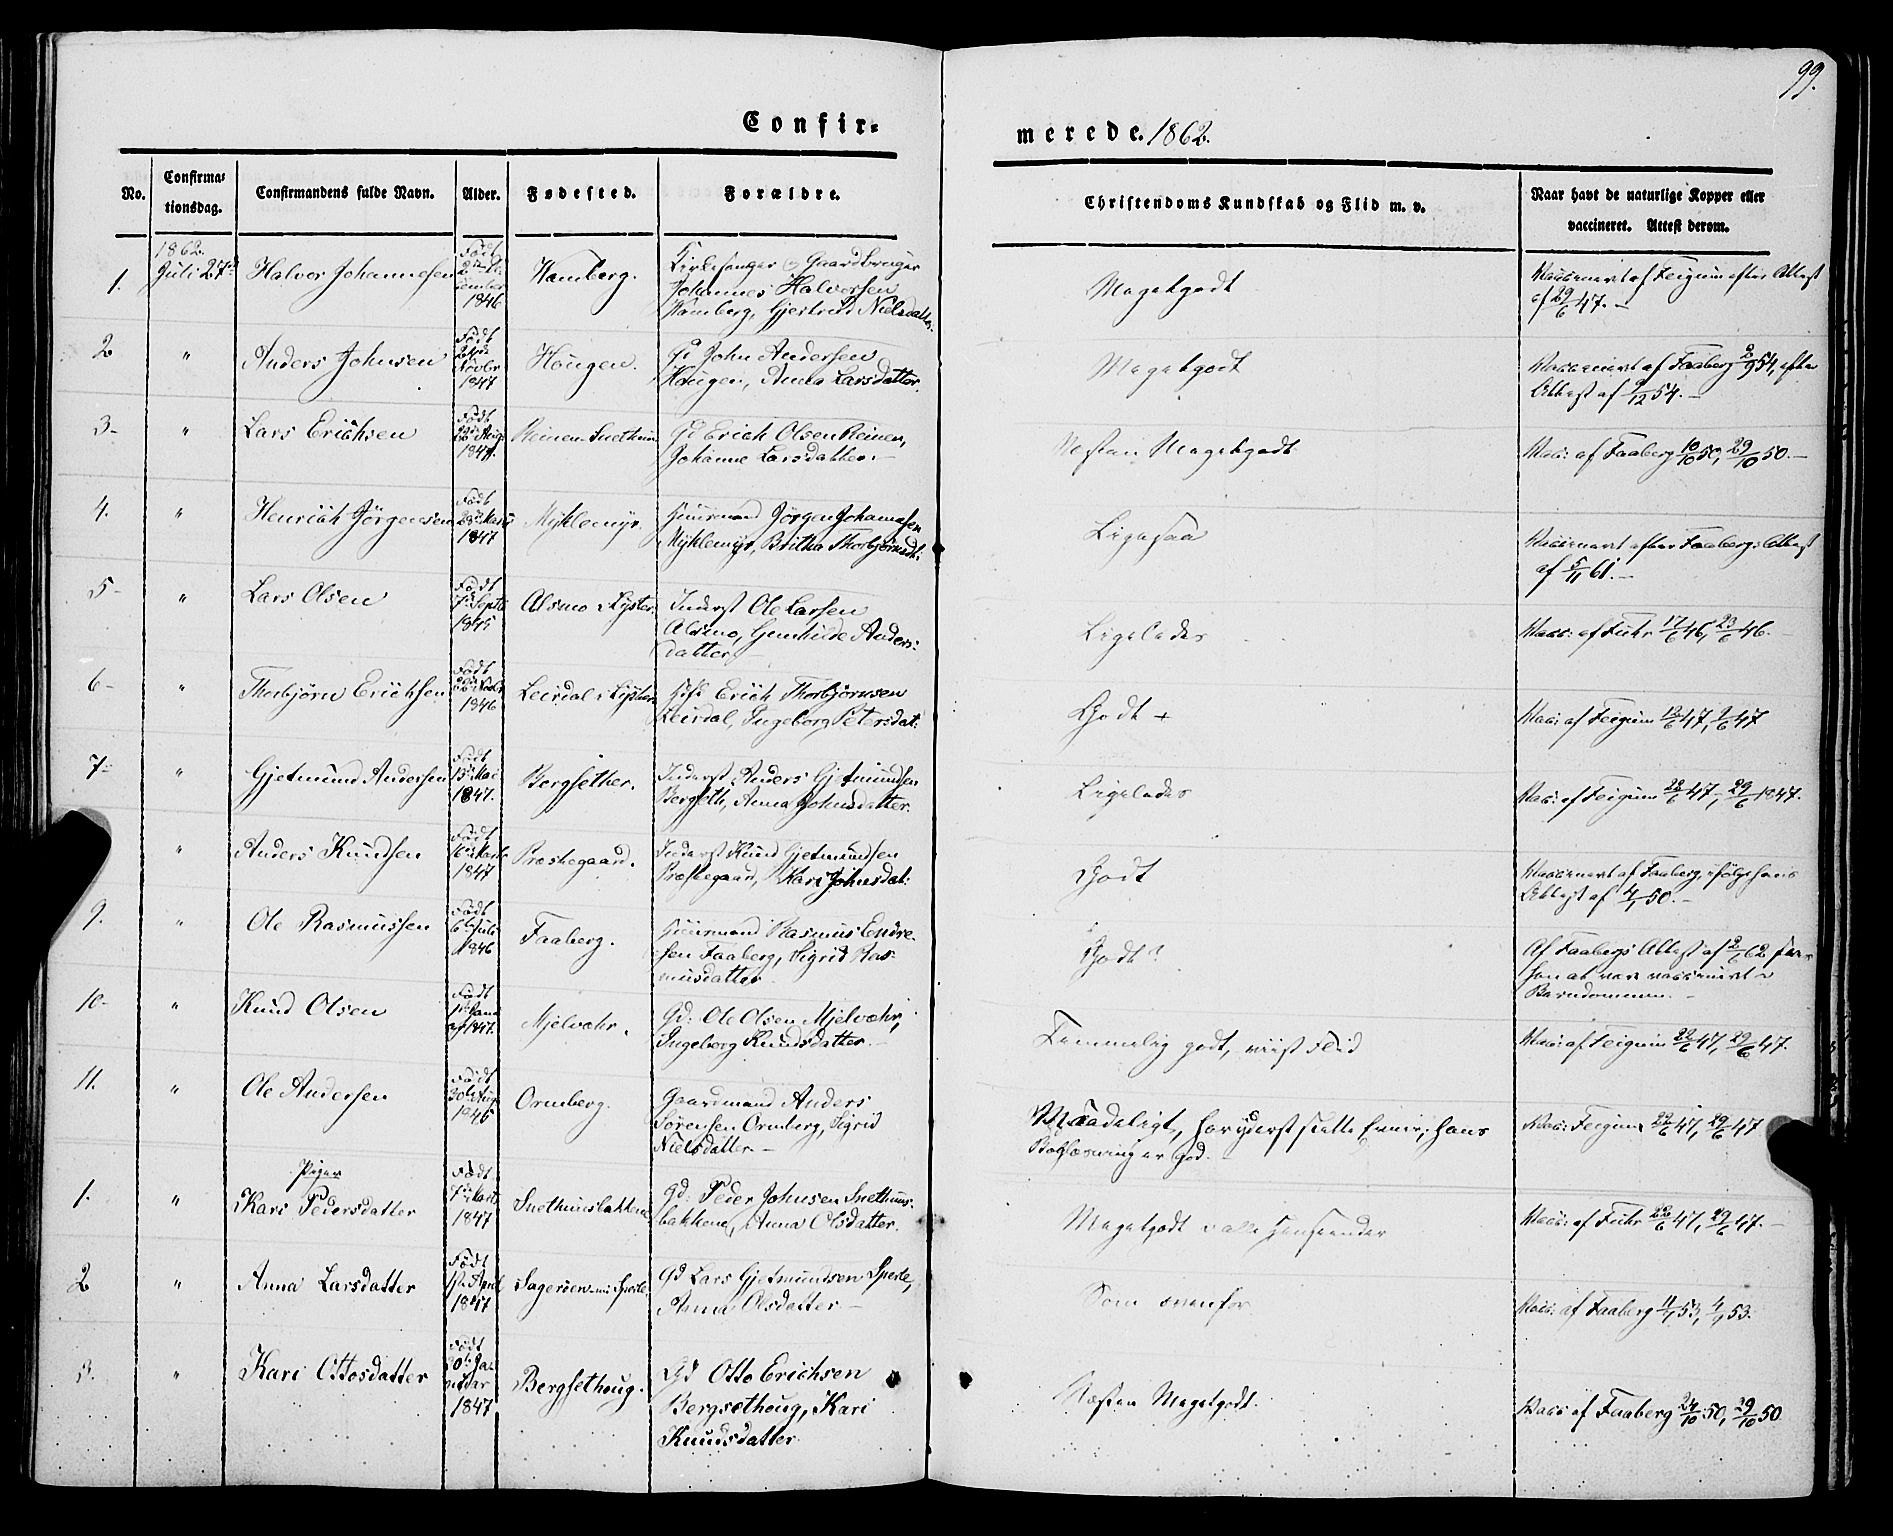 99.
Confir=
merede. 1862.
No.
Confirma=
tionsdag.
Confirmandens fulde Navn.
Alder.
Fødested.
Forældre.
Christendoms Kundskab og Flid m. v.
Naar havt de naturlige Kopper eller
vaccineret. Attest derom.
1862.
1. Juli 27de Halvor Johannesen
Født
1846
Hamberg.
Kirkesanger & Gaardbruger
Johannes Halvorsen
Hamberg, Gjertrud Nielsdatter.
Megetgodt
Vaccineret af Feigum efter Attest
af 29/6 47. –
2 " Anders Johnsen
Født
Novbr
1847
Hougen.
Gd John Andersen
Hougen, Anna Larsdatter.
Megetgodt
Vaccineret af Faaberg 2/9 54, efter
Attest af 9/12 54. –
3- " Lars Erichsen
Født
1847.
Reinen-Snethun
Gd Erich Olsen Reinen,
Johanne Larsdatter. –
Næsten Megetgodt
Vacc: af Faaberg 10/10 50, 29/10 50. –
4. " Henrich Jörgensen
Født
1847
Myklemyr.
Huusmand Jörgen Johannesen
Myklemyr, Britha Thorbjørnsdt:
Ligesaa
Vaccineret efter Faabergs Attest
af 5/11 61. –
5- " Lars Olsen
Født
7de Septb
1845
Alsmo i Lyster.
Inderst Ole Larsen
Alsmo, Gunhilde Anders:
datter. –
Ligeledes
Vacc: af Fuhr 17/6 46, 23/6 46. –
6- " Thorbjørn Erichsen
Født
Novbr
1846
Leirdal i Lyster
Erich Thorbjørnsen
Leirdal, Ingeborg Petersdat:
Godt +
Vacc: af Feigum 13/6 47, 9/6 47
7- " Gjetmund Andersen
Født
13de Mai
1847.
Bergsether.
Inderst Anders Gjetmundsen
Bergseth, Anna Johnsdatter.
Ligeledes
Vacc: af Feigum 22/6 47, 29/6 1847.
" Anders Knudsen
Født
Marts
1847
Præstegaard.
Inderst Knud Gjetmundsen
Præstegaard, Kari Johnsdat:
Godt
Vaccineret af Faaberg, ifølge hans
Attest af 4/1 50. –
9. " Ole Rasmussen
Født
6te Juli
1846
Faaberg.
Huusmand Rasmus Endre-
sen Faaberg, Sigrid Ras-
musdatter
Godt?
Af Faabergs Attest af 2/6 62
han at være vaccineret i
Barndommen. –
10- " Knud Olsen
Født
1847.
Mjelvæhr.
Gd: Ole Olsen Mjelvæhr,
Ingeborg Knudsdatter. –
Temmelig godt, viist Flid
Vacc: af Feigum 22/6 47, 29/6 47.
11. " Ole Andersen
Født
30te Aug
1845
Ormberg.
Gaardmand Anders
Sörensen Ormberg, Sigrid
Nielsdatter. –
Maadeligt, har yderst slette Evner, hans
Boglæsning er god. –
Vacc: Feigum 22/6 47, 29/6 47
Piger
1. " Kari Pedersdatter
Født
7de Marts
1847
Snethunsbakkene
Gd: Peder Johnsen Snethuns-
bakkene, Anna Olsdatter.
Megetgodt i alle Henseender
Vacc: af Fuhr 22/6 47, 29/6 47. –
2 " Anna Larsdatter
Født
April
1847
Sageröen
Gd Lars Gjetmundsen Sperle,
Anna Olsdatter –
Som ovenfor
Vacc: af Faaberg 4/1 53, 4/1 53.
3. " Kari Ottosdatter
Født
20de Ja-
nuar
1847
Bergsethoug.
Gd Otto Erichsen
Bergsethoug, Kari
Knudsdatter
Næsten Megetgodt.
Vacc: af Faaberg 24/10 50, 29/10 50